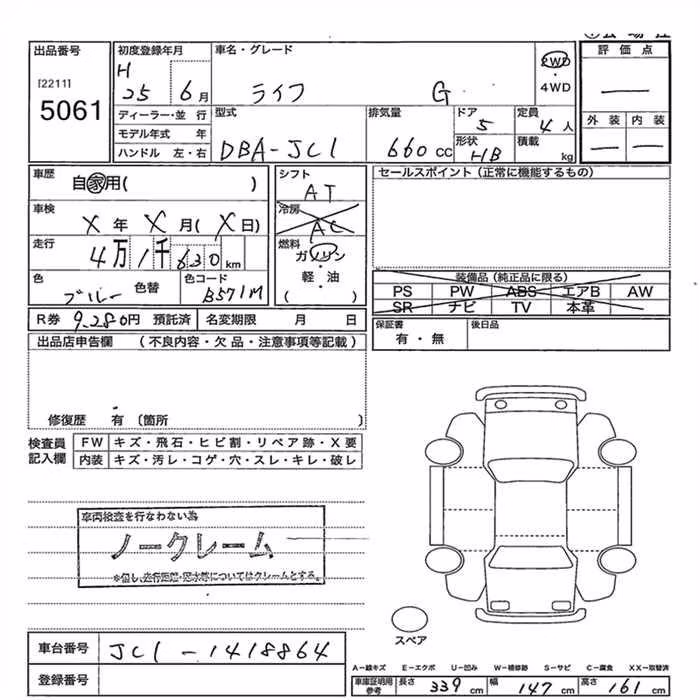 出品番号
[2211]
5061
初度登録年月
H
25 6月
車名・グレード
ライフ G
2WD
・
4WD
評価点
—
外装 内装
— —
ディーラー・並行
モデル年式 年
ハンドル 左・右
型式
DBA-JC1
排気量
660 CC
ドア
5
形状
HB
定員
4人
積載
kg
車歴
自家用( )
車検
X年 X月(X日)
走行
4万1千630km
色
ブルー
色替
色コード
B571M
シフト
AT
冷房
AC
燃料
ガソリン
・
軽・油
( )
セールスポイント(正常に機能するもの)
装備品(純正品に限る)
PS PW ABS エアB AW
SR ナビ TV 本革
R券 9,280円 預託済 名変期限 月 日
保証書
有・無
後日品
出品店申告欄 (不良内容・欠品・注意事項等記載)
修復歴 有 〔箇所 〕
検査員
記入欄
FW キズ・飛石・ヒビ割・リペア跡・X要
内装 キズ・汚レ・コゲ・穴・スレ・キレ・破レ
車両検査を行なわない為
ノークレーム
※但し、走行距離・冠水等についてはクレームとする。
スペア
車台番号 JC1-1418864
登録番号
A-線キズ E-エクボ U-凹み W-補修跡 S-サビ C-腐食 XX-取替済
車庫証明用
参考
長さ 339 cm 幅 147 cm 高さ 161 cm